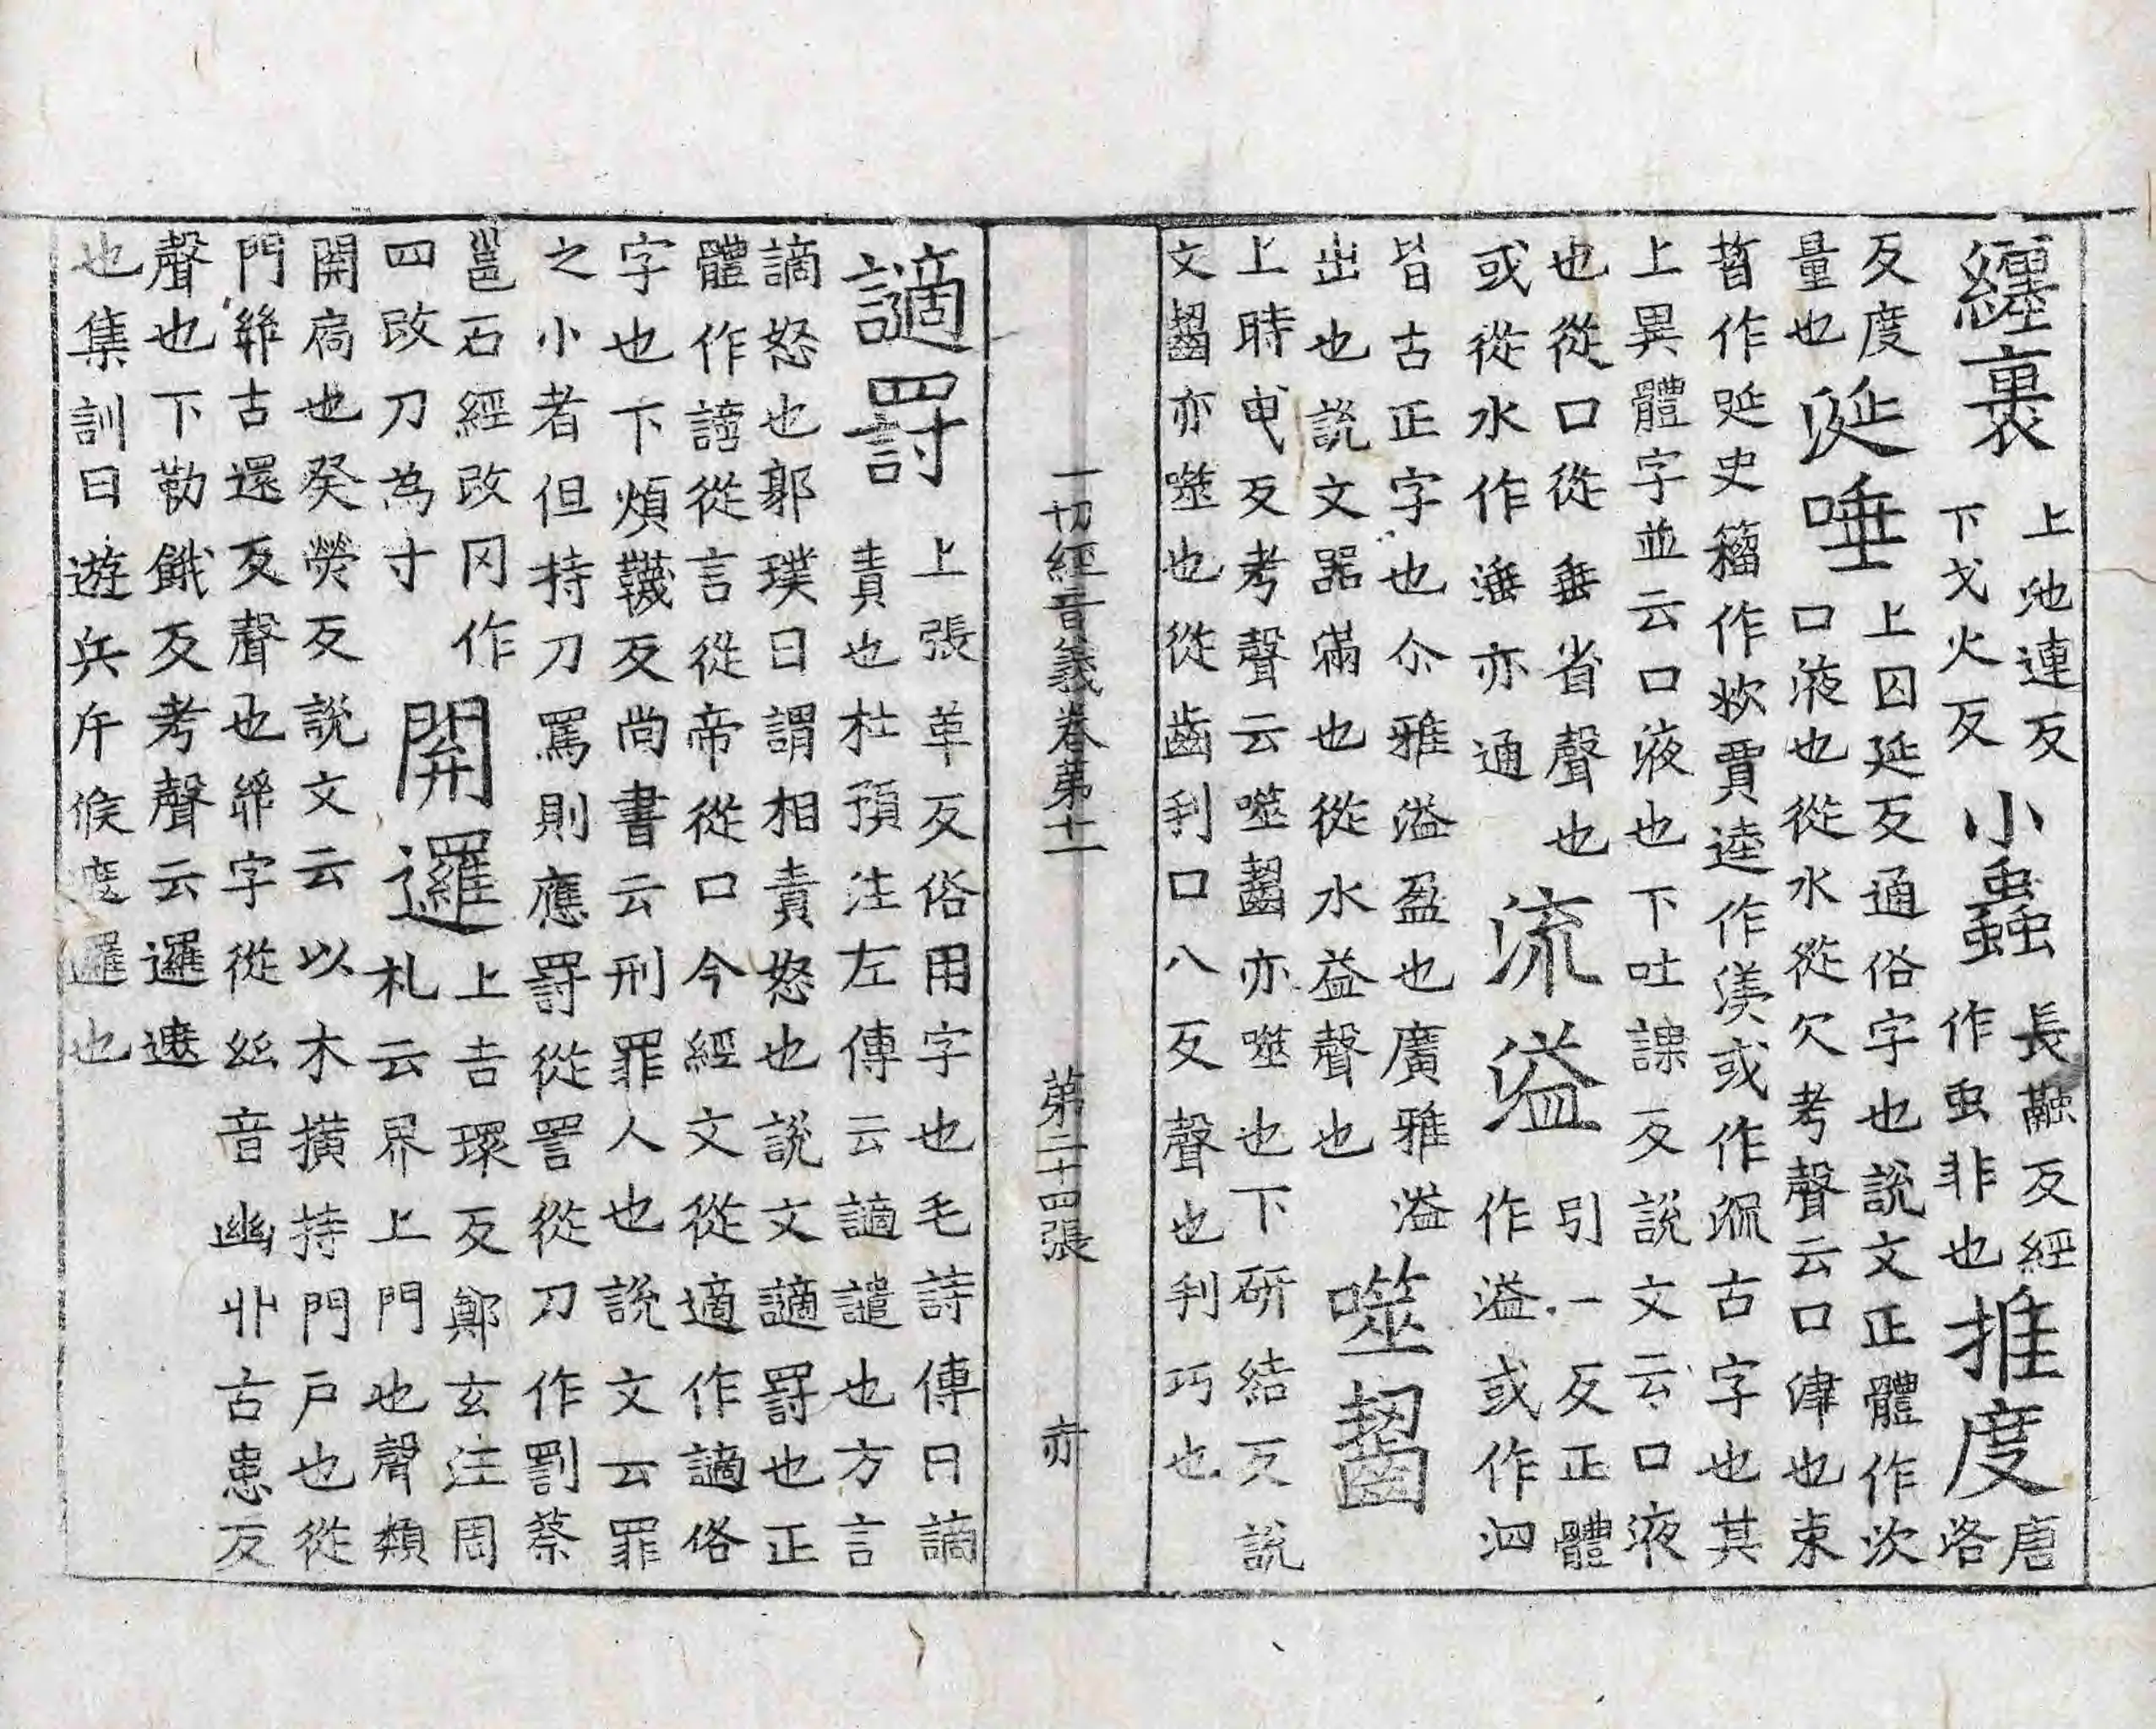 纏裹
上池連反
下戈火反
小蟲
長融反經
作虫非也
推度
唐
洛
反度
量也
涎唾
上囚延反通俗字也說文正體作㳄
口液也從水從欠考聲云口津也束
晳作唌史籒作㳄賈逵作湺或作㳅古字也其
上異體字並云口液也下吐課反說文云口液
也從口從垂省聲也
或從水作涶亦通
流溢
引一反正體
作溢或作泗
皆古正字也尒雅溢盈也廣雅溢
出也說文器滿也從水益聲也
噬齧
上時曳反考聲云噬齧亦噬也下研結反說
文齧亦噬也從齒㓞口八反聲也㓞巧也
一切經音義卷第十一 第二十四張 亦
讁罰
上張革反俗用字也毛詩傳曰謫
責也杜預注左傳云讁譴也方言
謫怒也郭璞曰謂相責怒也說文讁罰也正
體作謫從言從帝從口今經文從適作讁俗
字也下煩韈反尚書云刑罪人也說文云罪
之小者但持刀罵則應罰從詈從刀作罰蔡
邕石經改冈作
四改刀為寸
開邏
上吉環反鄭玄注周
札云界上門也聲類
開扃也癸熒反說文云以木撗持門戶也從
門𢇇古還反聲也𢇇字從絲音幽丱古患反
聲也下勒餓反考聲云邏遮
也集訓曰遊兵斥候遮邏也